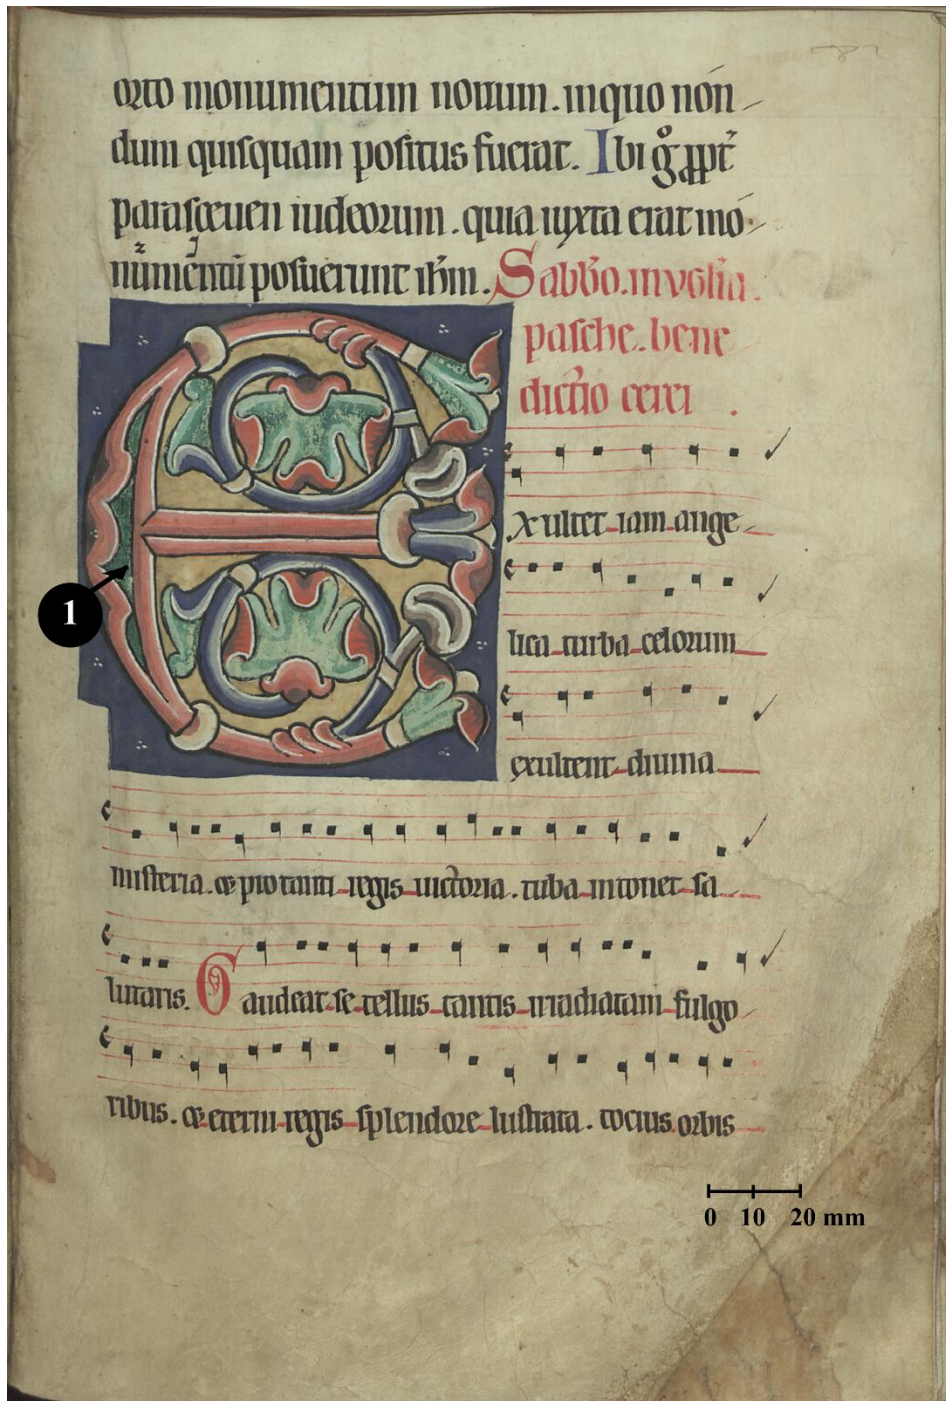 orto monumentum nouum. inquo nón
dum quisquam positus fuerat. Ibi gͦ ꝓpt̄
parasceuen iudeorum. quia iuxta erat mo
numentū posuerunt ihm. Sabb̄o. in vigl̄ia
pasche. bene
dictio cerei.
Exultet iam ange
lica turba celorum
exultent diuina
misteria. & pro tanti regis uictoria. tuba intonet sa
lutaris. Gaudeat se tellus tantis irradiatam fulgo
ribus. & eterni regis splendore lustrata. tocius orbis
1
0 10 20 mm